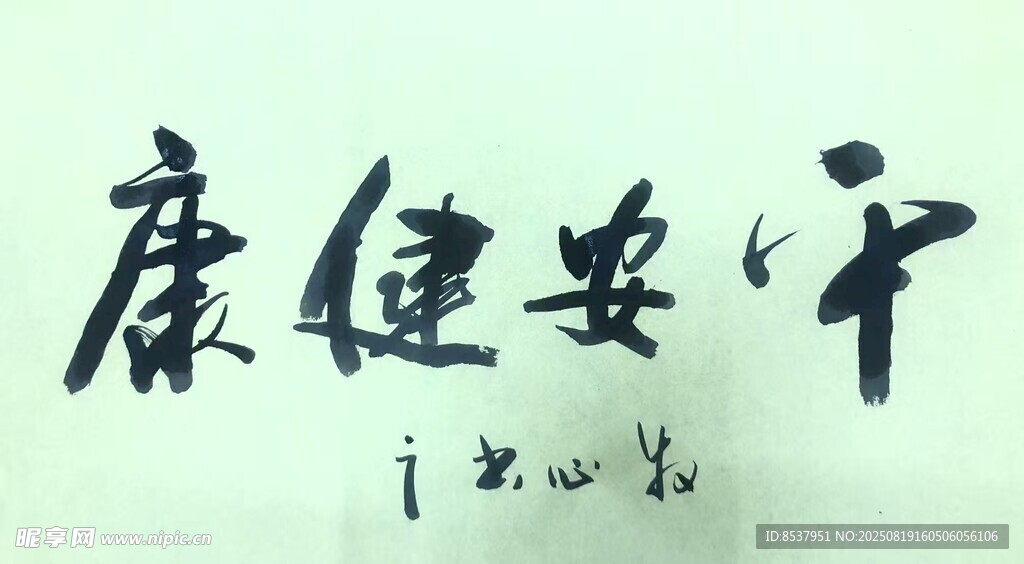 康健安宁
牧心书
昵享网 www.nipic.cn
ID:8537951 NO:20250819160506056106